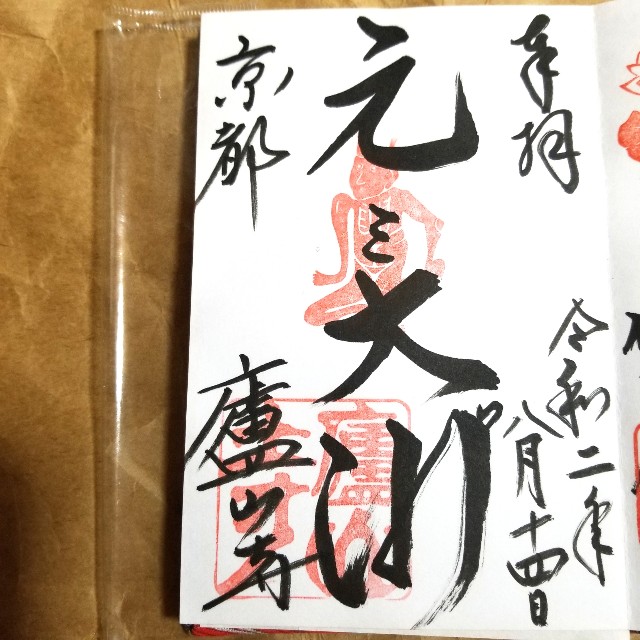 奉拝
令和二年
八月十四日
元三大師
京都
廬山寺
廬山寺